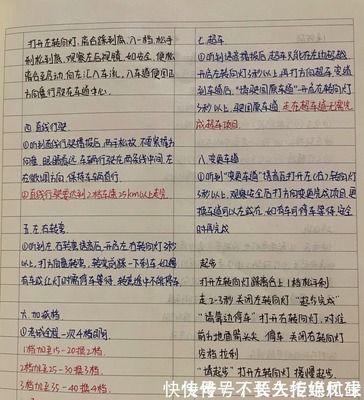 打开左转向灯,离合踩到底,入一档,松手
刹到底,观察左后视镜,如安全,使松
离合至启动,向左汇入车流,入车道使回正
方向盘行驶在车道中心.
四 直线行驶
①听到直线行驶播报后,两手松放,不要紧借方
向盘,眼睛看远,车辆行驶在两条线中间,左
右微调方向,保持车辆直行.
②直线行驶要达到2档车速25km以上走完.
五.左右转弯
①听到左.右转弯语音后,开启左.右转向灯3秒
以上,打方向盘转弯,转弯前踩一下刹车,如遇
有车或红灯时需停车等待,转弯途中不能停车.
六.加减档
①考试全程一次4档即可
1档加至15-20换2档.
2档加至25-30换3档.
3档加至35-40换4档.
七.超车
①听到语音播报后,超车只能在左边超越
开启左转向灯3秒以上,再打方向超车.变道
到车道后."请驶回原车道"开启右转向灯
3秒以上,驶回原车道.走在超车道无需完
成超车项目.
八.变更车道
①听到"变更车道"语音后打开(左)右转向灯
3秒以上,观察安全后打方向变更完成项目.更
换车道可以左或右,如有车可停车等待,安全
时再完成
起步
打开左转向灯踩离合上1档松手刹
走2-3秒关闭左转向灯"起步完成"
"请靠边停车"打开右转向灯,对准
前右地面箭头尖 停车 关闭右转向灯
空档拉刹
"请起步"打开左转向灯慢慢起步.